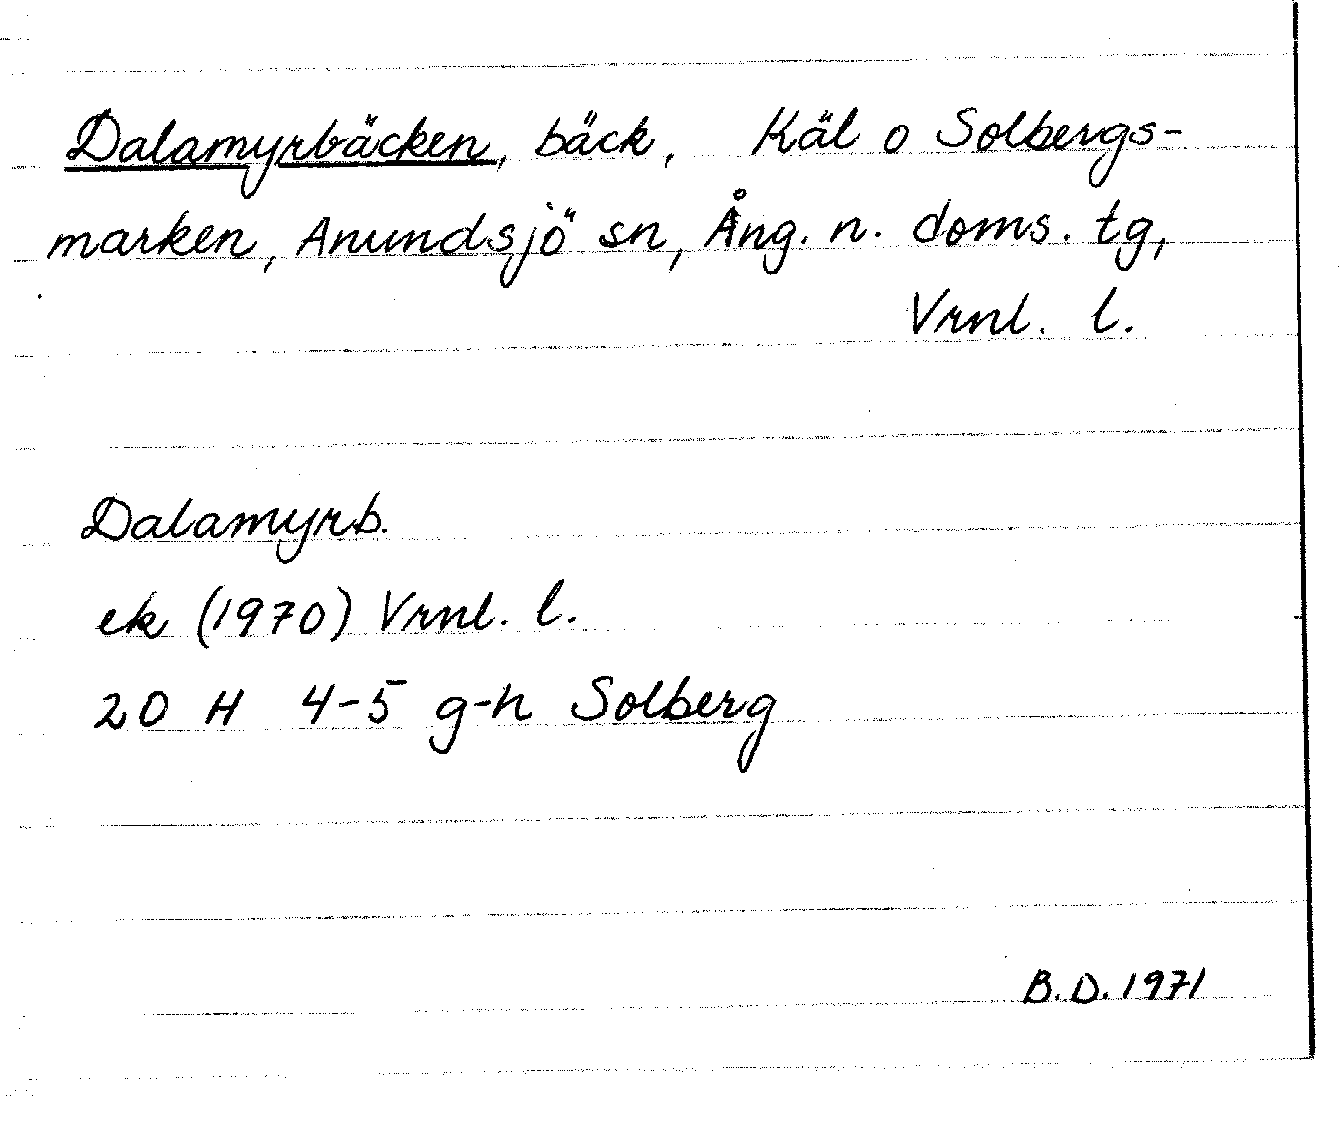 Dalamyrbäcken, bäck, Käl o Solbergs-
marken, Anundsjö sn, Ång. n. doms. tg,
Vrnl. l.
Dalamyrb.
ek (1970) Vrnl. l.
20 H 4-5 g-h Solberg
B.D. 1971